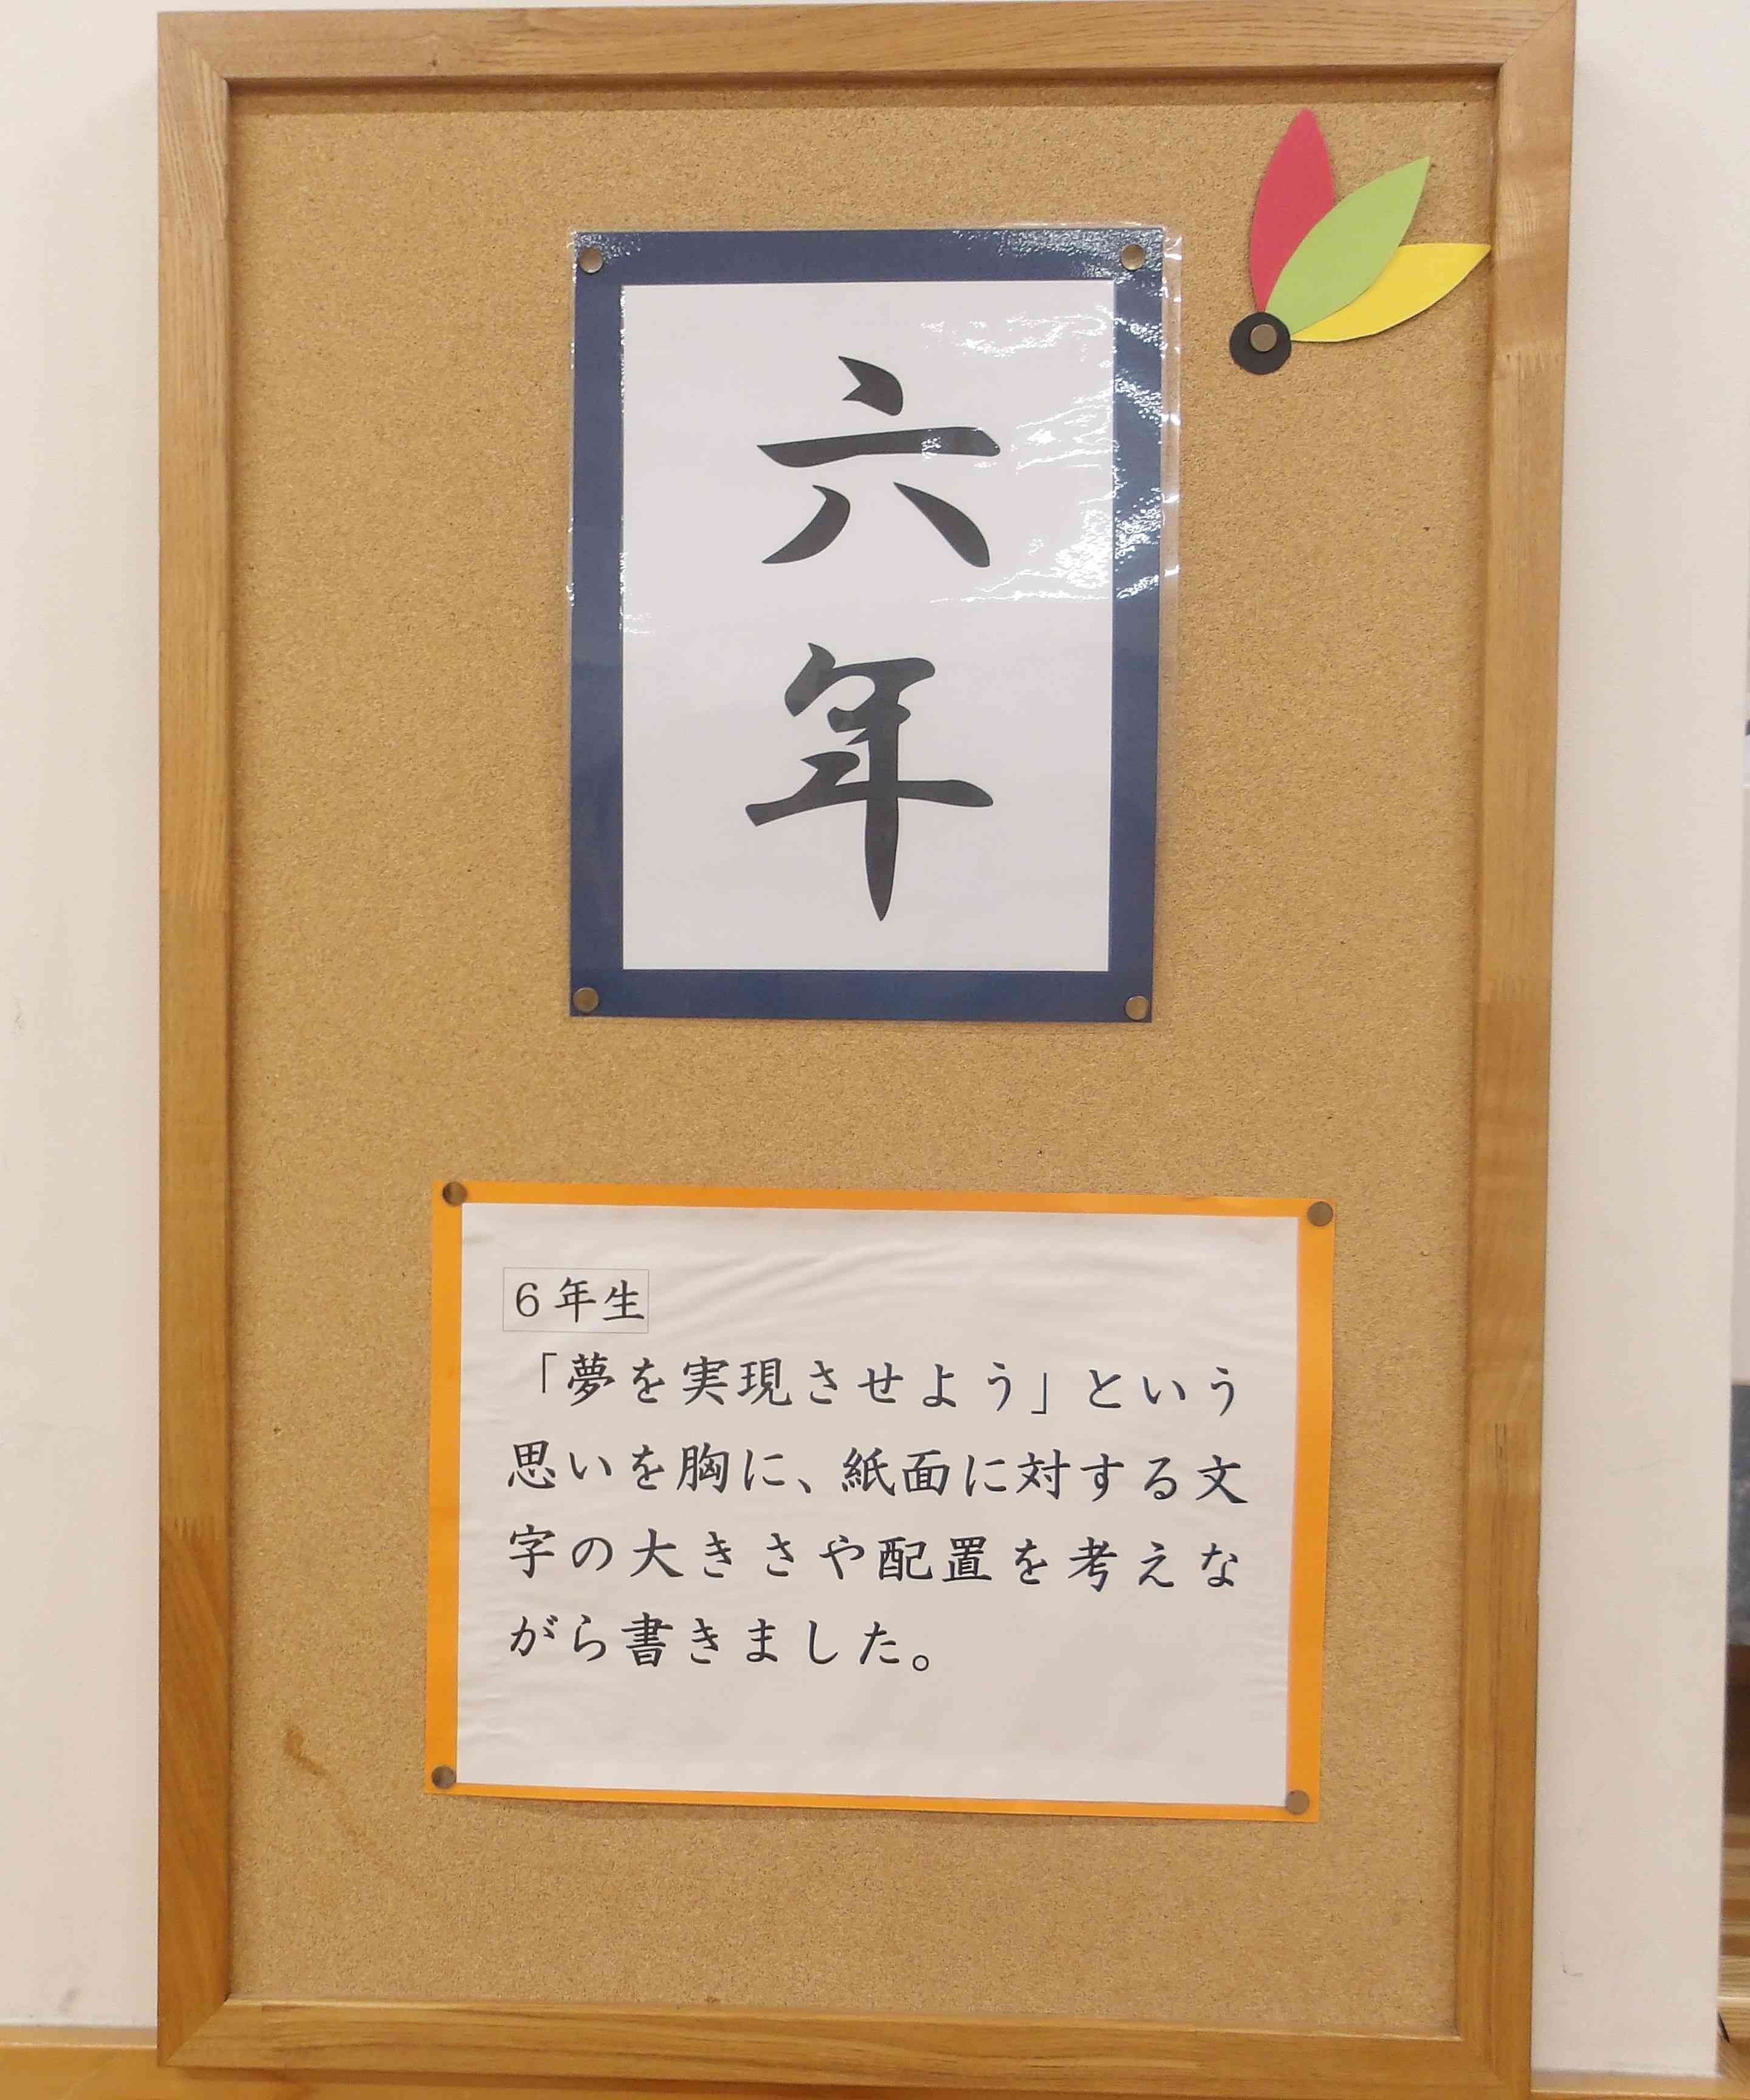 六年
６年生
「夢を実現させよう」という
思いを胸に、紙面に対する文
字の大きさや配置を考えな
がら書きました。